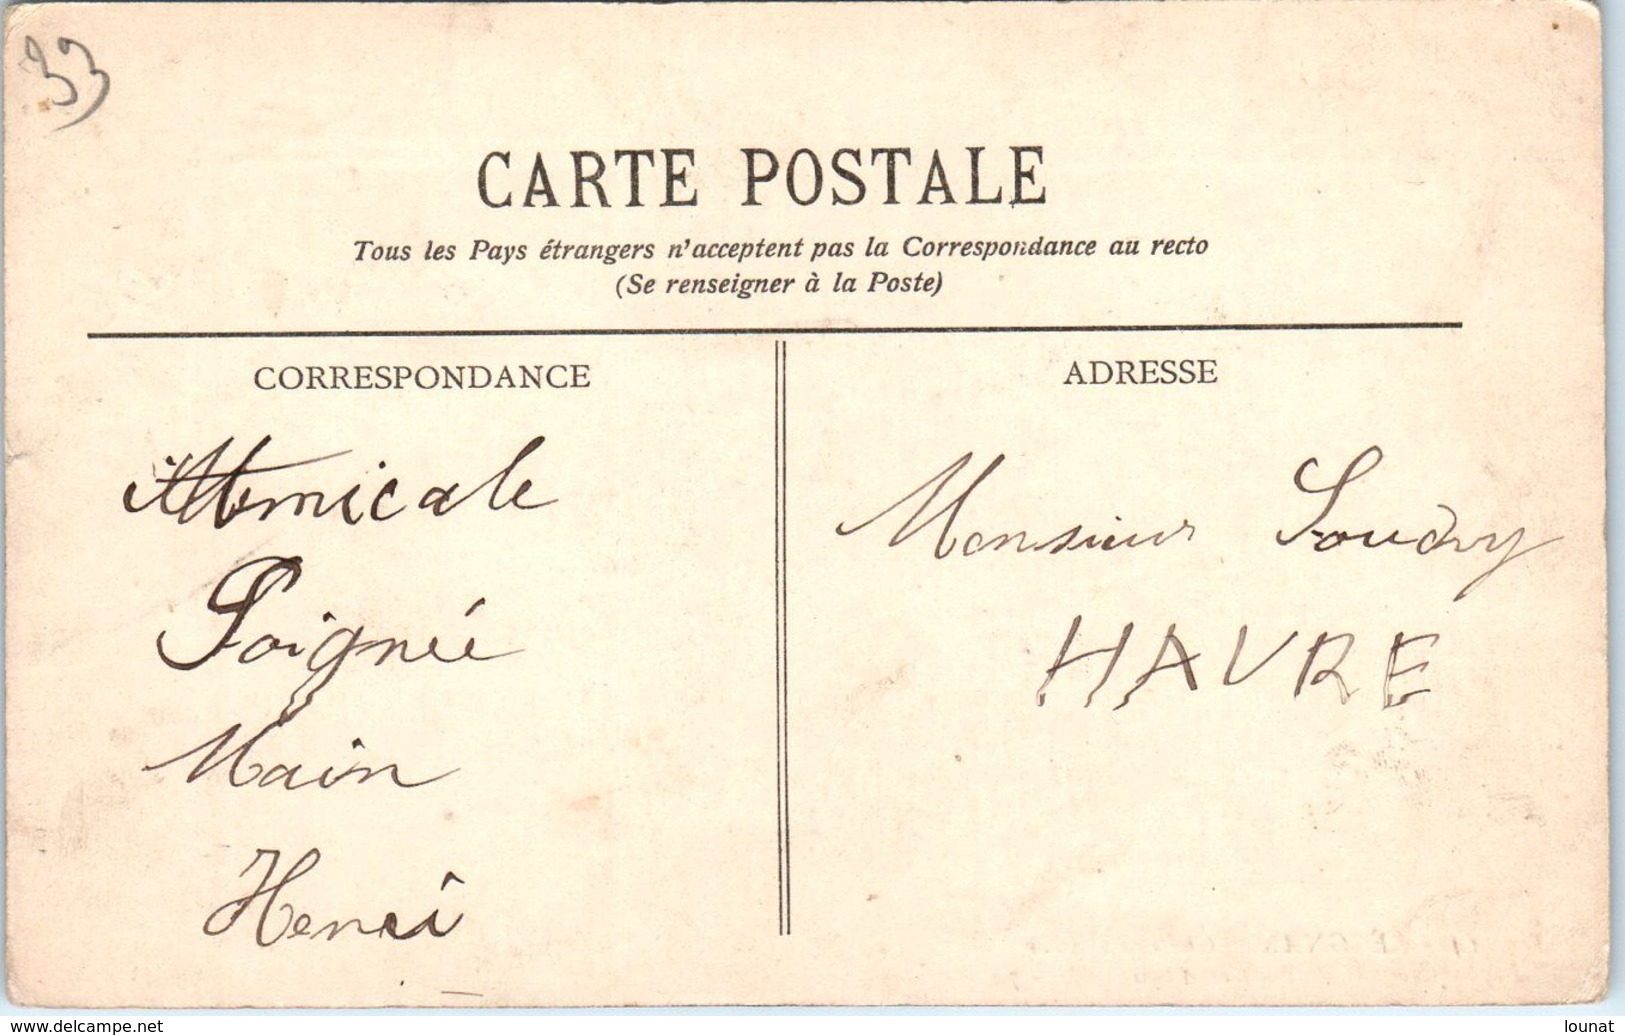 33
CARTE POSTALE
Tous les Pays étrangers n'acceptent pas la Correspondance au recto
(Se renseigner à la Poste)
CORRESPONDANCE
Amicale
Poignée
Main
Henri
ADRESSE
Monsieur Soudry
HAVRE
www.delcampe.net
lounat